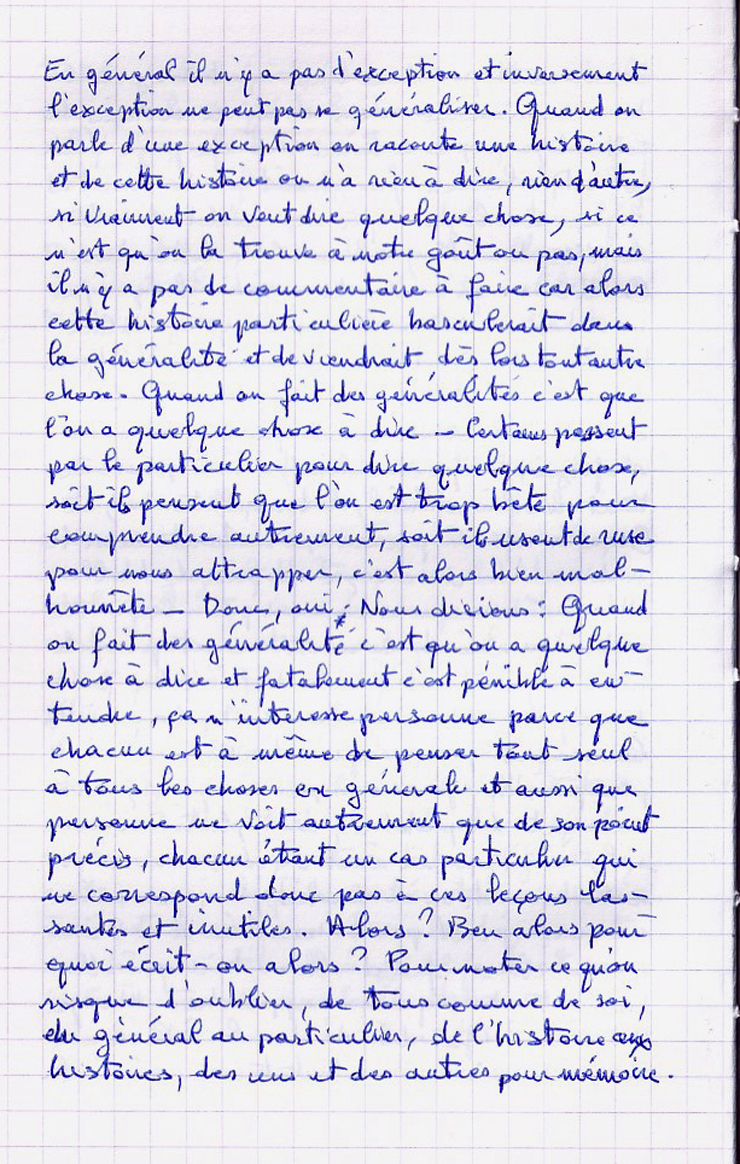 En général il n'y a pas d'exception et inversement
l'exception ne peut pas se généraliser. Quand on
parle d'une exception on raconte une histoire
et de cette histoire on n'a rien à dire, rien d'autre,
si vraiment on veut dire quelque chose, si ce
n'est qu'on la trouve à notre goût ou pas, mais
il n'y a pas de commentaire à faire car alors
cette histoire particulière basculerait dans
la généralité et deviendrait dès lors tout autre
chose. Quand on fait des généralités c'est que
l'on a quelque chose à dire - Certains passent
par le particulier pour dire quelque chose,
soit ils pensent que l'on est trop bête pour
comprendre autrement, soit ils usent de ruse
pour nous attrapper, c'est alors bien mal-
honnête - Donc, oui : Nous disions : Quand
on fait des généralité* c'est qu'on a quelque
chose à dire et fatalement c'est pénible à en-
tendre, ça n'intéresse personne parce que
chacun est à même de penser tout seul
à tous les choses en générale et aussi que
personne ne voit autrement que de son point
précis, chacun étant un cas particulier qui
ne correspond donc pas à ces leçons las-
santes et inutiles. Alors ? Ben alors pour-
quoi écrit-on alors ? Pour noter ce qu'on
risque d'oublier, de tous comme de soi,
du général au particulier, de l'histoire aux
histoires, des uns et des autres pour mémoire.